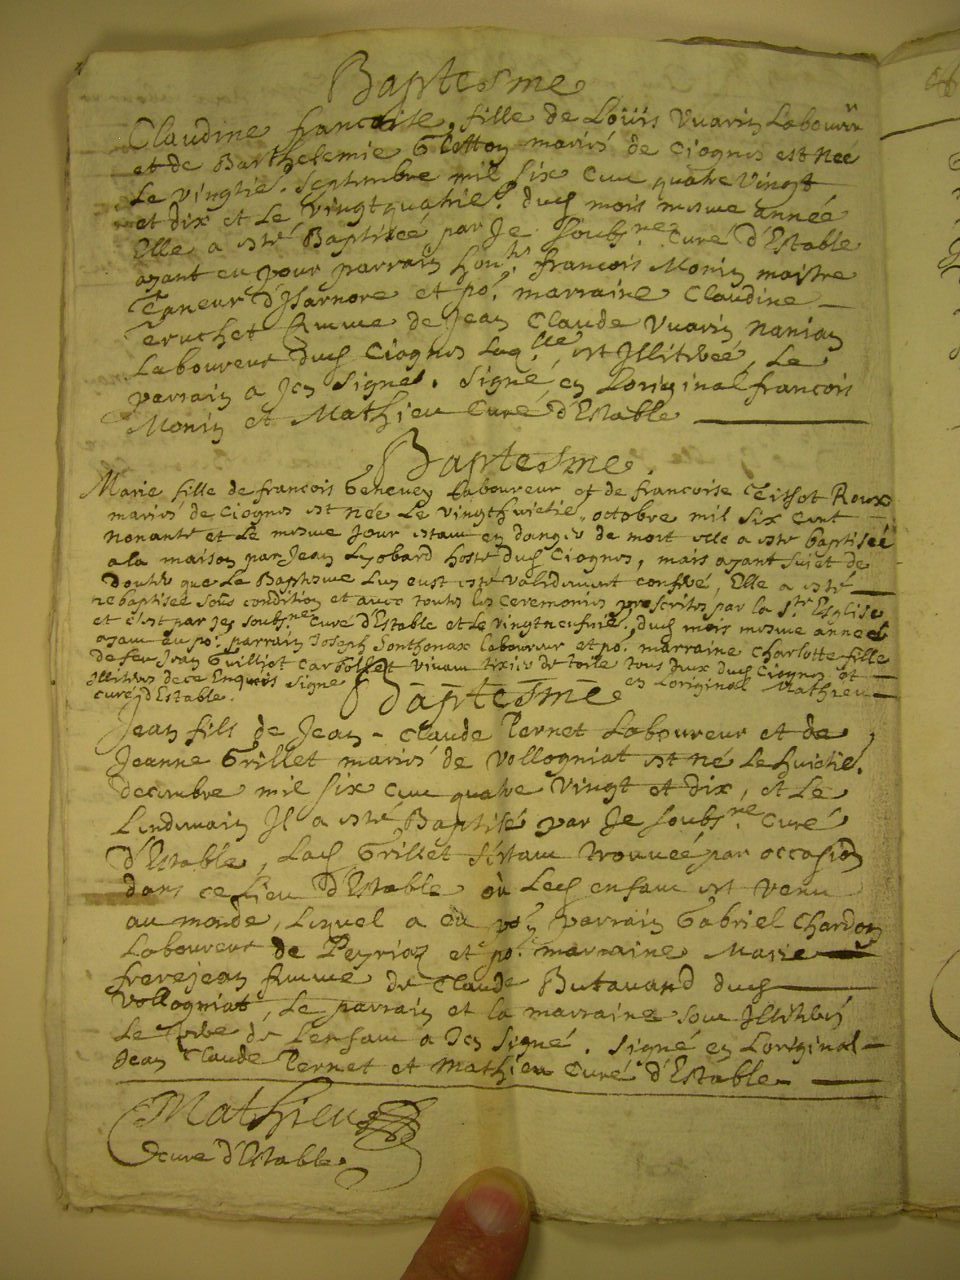 Baptesme
Claudine francoise, fille de Loüis Vuarin Laboureur
et de Barthelemie Gletton mariés de Ciognes est née
Le vingtie. Septembre mil six cens quatre vingt
et dix et Le vingtquatrie. dud mois mesme année
Elle a esté Baptisée par Je soubsne. Curé d'Estable
ayant eu pour parrain hon. françois Monin maistre
Taneur d'Isarnore et po. marraine Claudine
Truchet femme de Jean Claude Vuarin
Laboureur dud Ciognes Laqlle est Illiterée, Le
parrain a Icy signé. Signé en Loriginal francois
Monin et Mathieu Curé d'Estable
Baptesme.
Marie fille de francois Genevey Laboureur et de francoise Tissot Roux
mariés de Ciognes est née Le vingthuictie. octobre mil six cent
nonante et Le mesme Jour estant en danger de mort elle a esté baptisée
a la maison par Jean hoste dud Ciognes, mais ayant sujet de
doutter que Le Baptesme Luy eust esté validement conferé, Elle a esté
rebaptisée sous condition et avec toutes les ceremonies prescrites par la Ste Esglise
et c'est par Je soubsne. Curé d'Estable et Le vingtneufvie. dud mois mesme année
ayant eu po. parrain Joseph Sonthonax laboureur et po. marraine Charlotte fille
de feu Jean Guilliot vivant tixier de toile tous deux dud Ciognes et
Illiterés de ce Enquis signé en Loriginal Mathieu
curé d'Estable.
Baptesme
Jean fils de Jean-Claude Pernet Laboureur et de
Jeanne Grillet mariés de Vollogniat est né Le huictie.
decembre mil six cens quatre vingt et dix, et Le
Lendemain Il a esté Baptisé par Je soubsne. Curé
d'Estable, Lad Grillet s'estant trouvée par occasion
dans ce lieu d'Estable où Led enfant est venu
au monde, Lequel a eu po. parrain Gabriel Chardon
Laboureur de Peyriaz et po. marraine Marie
frerejean femme de Claude Butavand dud
Vollogniat, Le parrain et la marraine sont Illiterés
Le pere de Lenfant a Icy signé. Signé en Loriginal
Jean Claude Pernet et Mathieu Curé d'Estable
Mathieu
Curé d'Estable